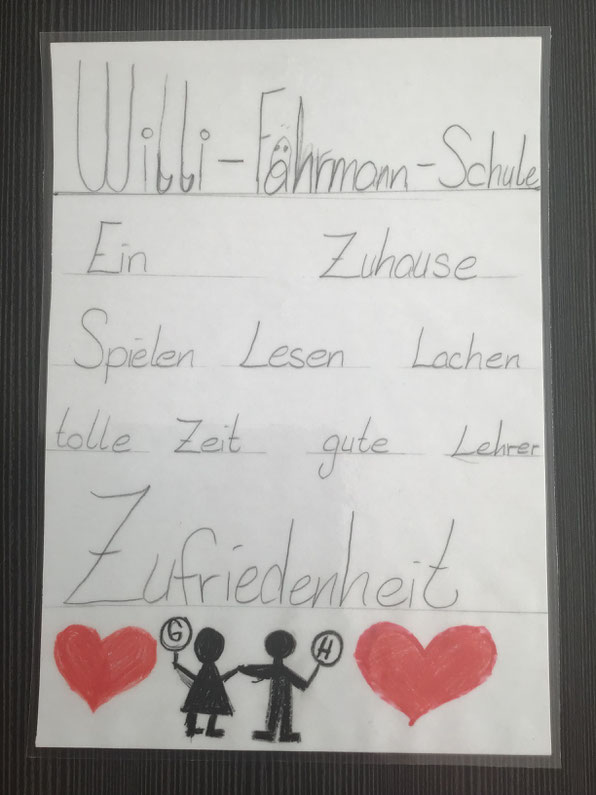 Willi-Fährmann-Schule
Ein Zuhause
Spielen Lesen Lachen
tolle Zeit gute Lehrer
Zufriedenheit
G H